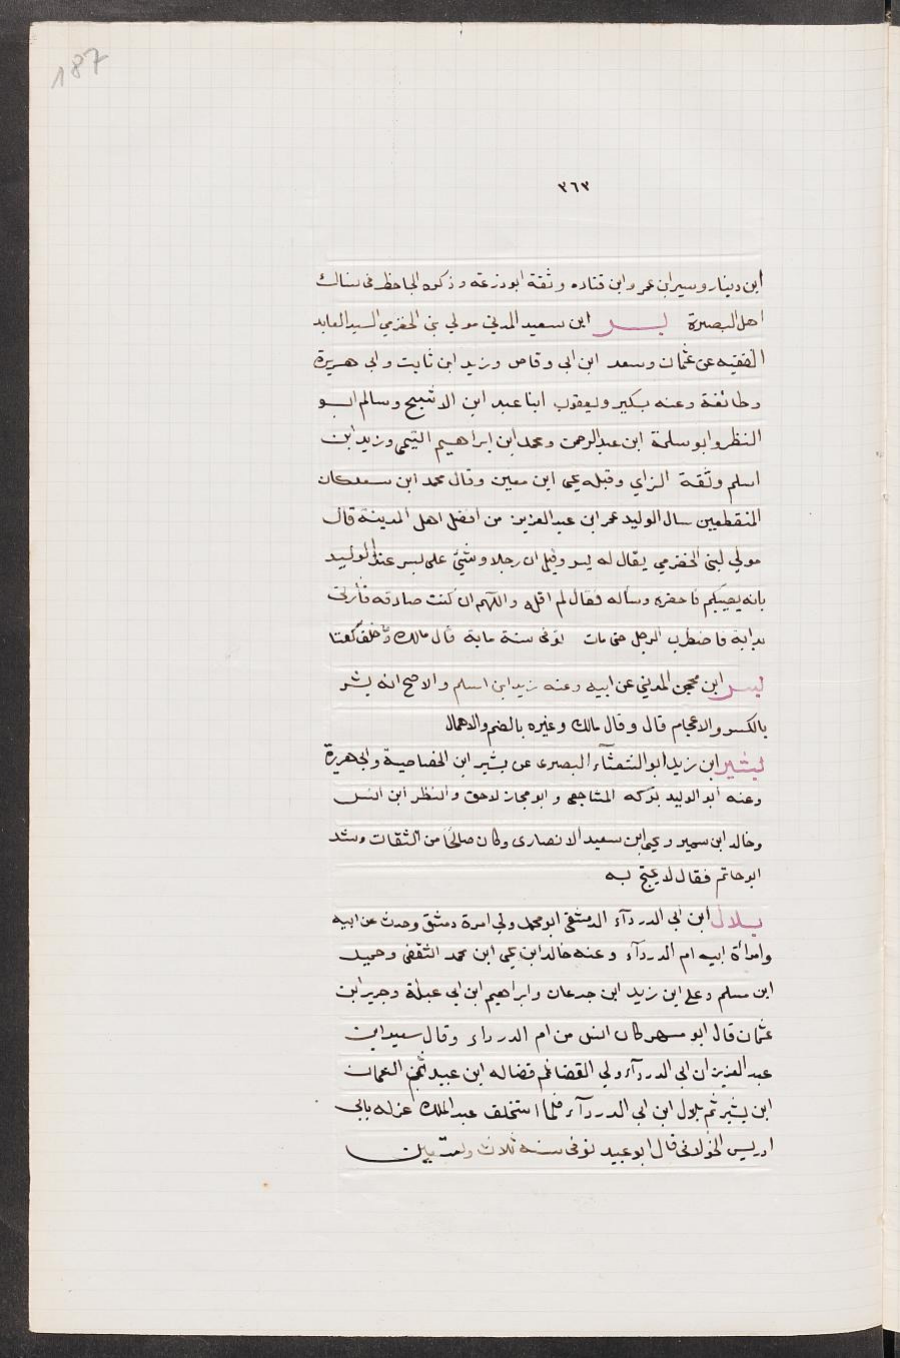 187
٣٦٣
ابن دينار وسيرابن عمر وابن قتاده وثقة ابوذرعه وذكره الجاحظ فى نساك
اهل البصرة بسر ابن سعيد المدني مولي بني الحضرمي السيد العابد
الفقيه عن عثمان وسعد ابن ابى وقاص وزيد ابن ثابت وابى هريرة
وطائفة وعنه بكير ويعقوب ابنا عبد ابن الاشبح وسالم ابو
النظر وابو سلمة ابن عبد الرحمن ومحمد ابن ابراهيم التيمى وزيد ابن
اسلم وثقة الزاي وقبله يحى ابن معين وقال محمد ابن سعد كان
المنقطعين سال الوليد عمر ابن عبد العزيز من افضل اهل المدينة قال
مولي لبنى الحضرمي يقال له بسر وقيل ان رجلا وشيَّ على بسر عند الوليد
بانه يعيبكم فاحضره وسأله فقال لم اقله واللهم ان كنت صادقه فأرنى
به ابة فاضطرب الرجل حتى مات توفى سنة ماية قال مالك وخلف كفنا
بسر ابن محجن المديني عن ابيه وعنه زيد ابن اسلم والاصح انه بشر
بالكسر والاعجام قال وقال مالك وغيره بالضم والاهمال
بشير ابن زيد ابو النتعثآء البصرى عن بشير ابن الخصاصية وابى هريرة
وعنه ابو الوليد بركه المشاجعى وابو مجاز لاحق والنظر ابن انس
وخالد ابن سمير ويحى ابن سعيد الانصارى وكان صالحًا من الثقات وشد
ابو حاتم فقال لا يحتج به
بلال ابن ابى الدردآء الدمشقى ابو محمد ولي امرة دمشق وحدث عن ابيه
وامرأة ابيه ام الدردآء وعنه خالد ابن يحى ابن محمد الثقفى وحميد
ابن مسلم وعلى ابن زيد ابن جدعان وابراهيم ابن ابى عبلة وجرير ابن
عثمان قال ابو مسهر كان اسن من ام الدرداء وقال سعيد ابن
عبد العزيز ان ابى الدردآء ولي القضا ثم فضاله ابن عبيد ثم النعمان
ابن بشير ثم بلال ابن ابى الدردآء فلما استخلف عبد الملك عزله بابى
ادريس الخولانى قال ابو عبيد توفى سنه ثلاث وتسعين